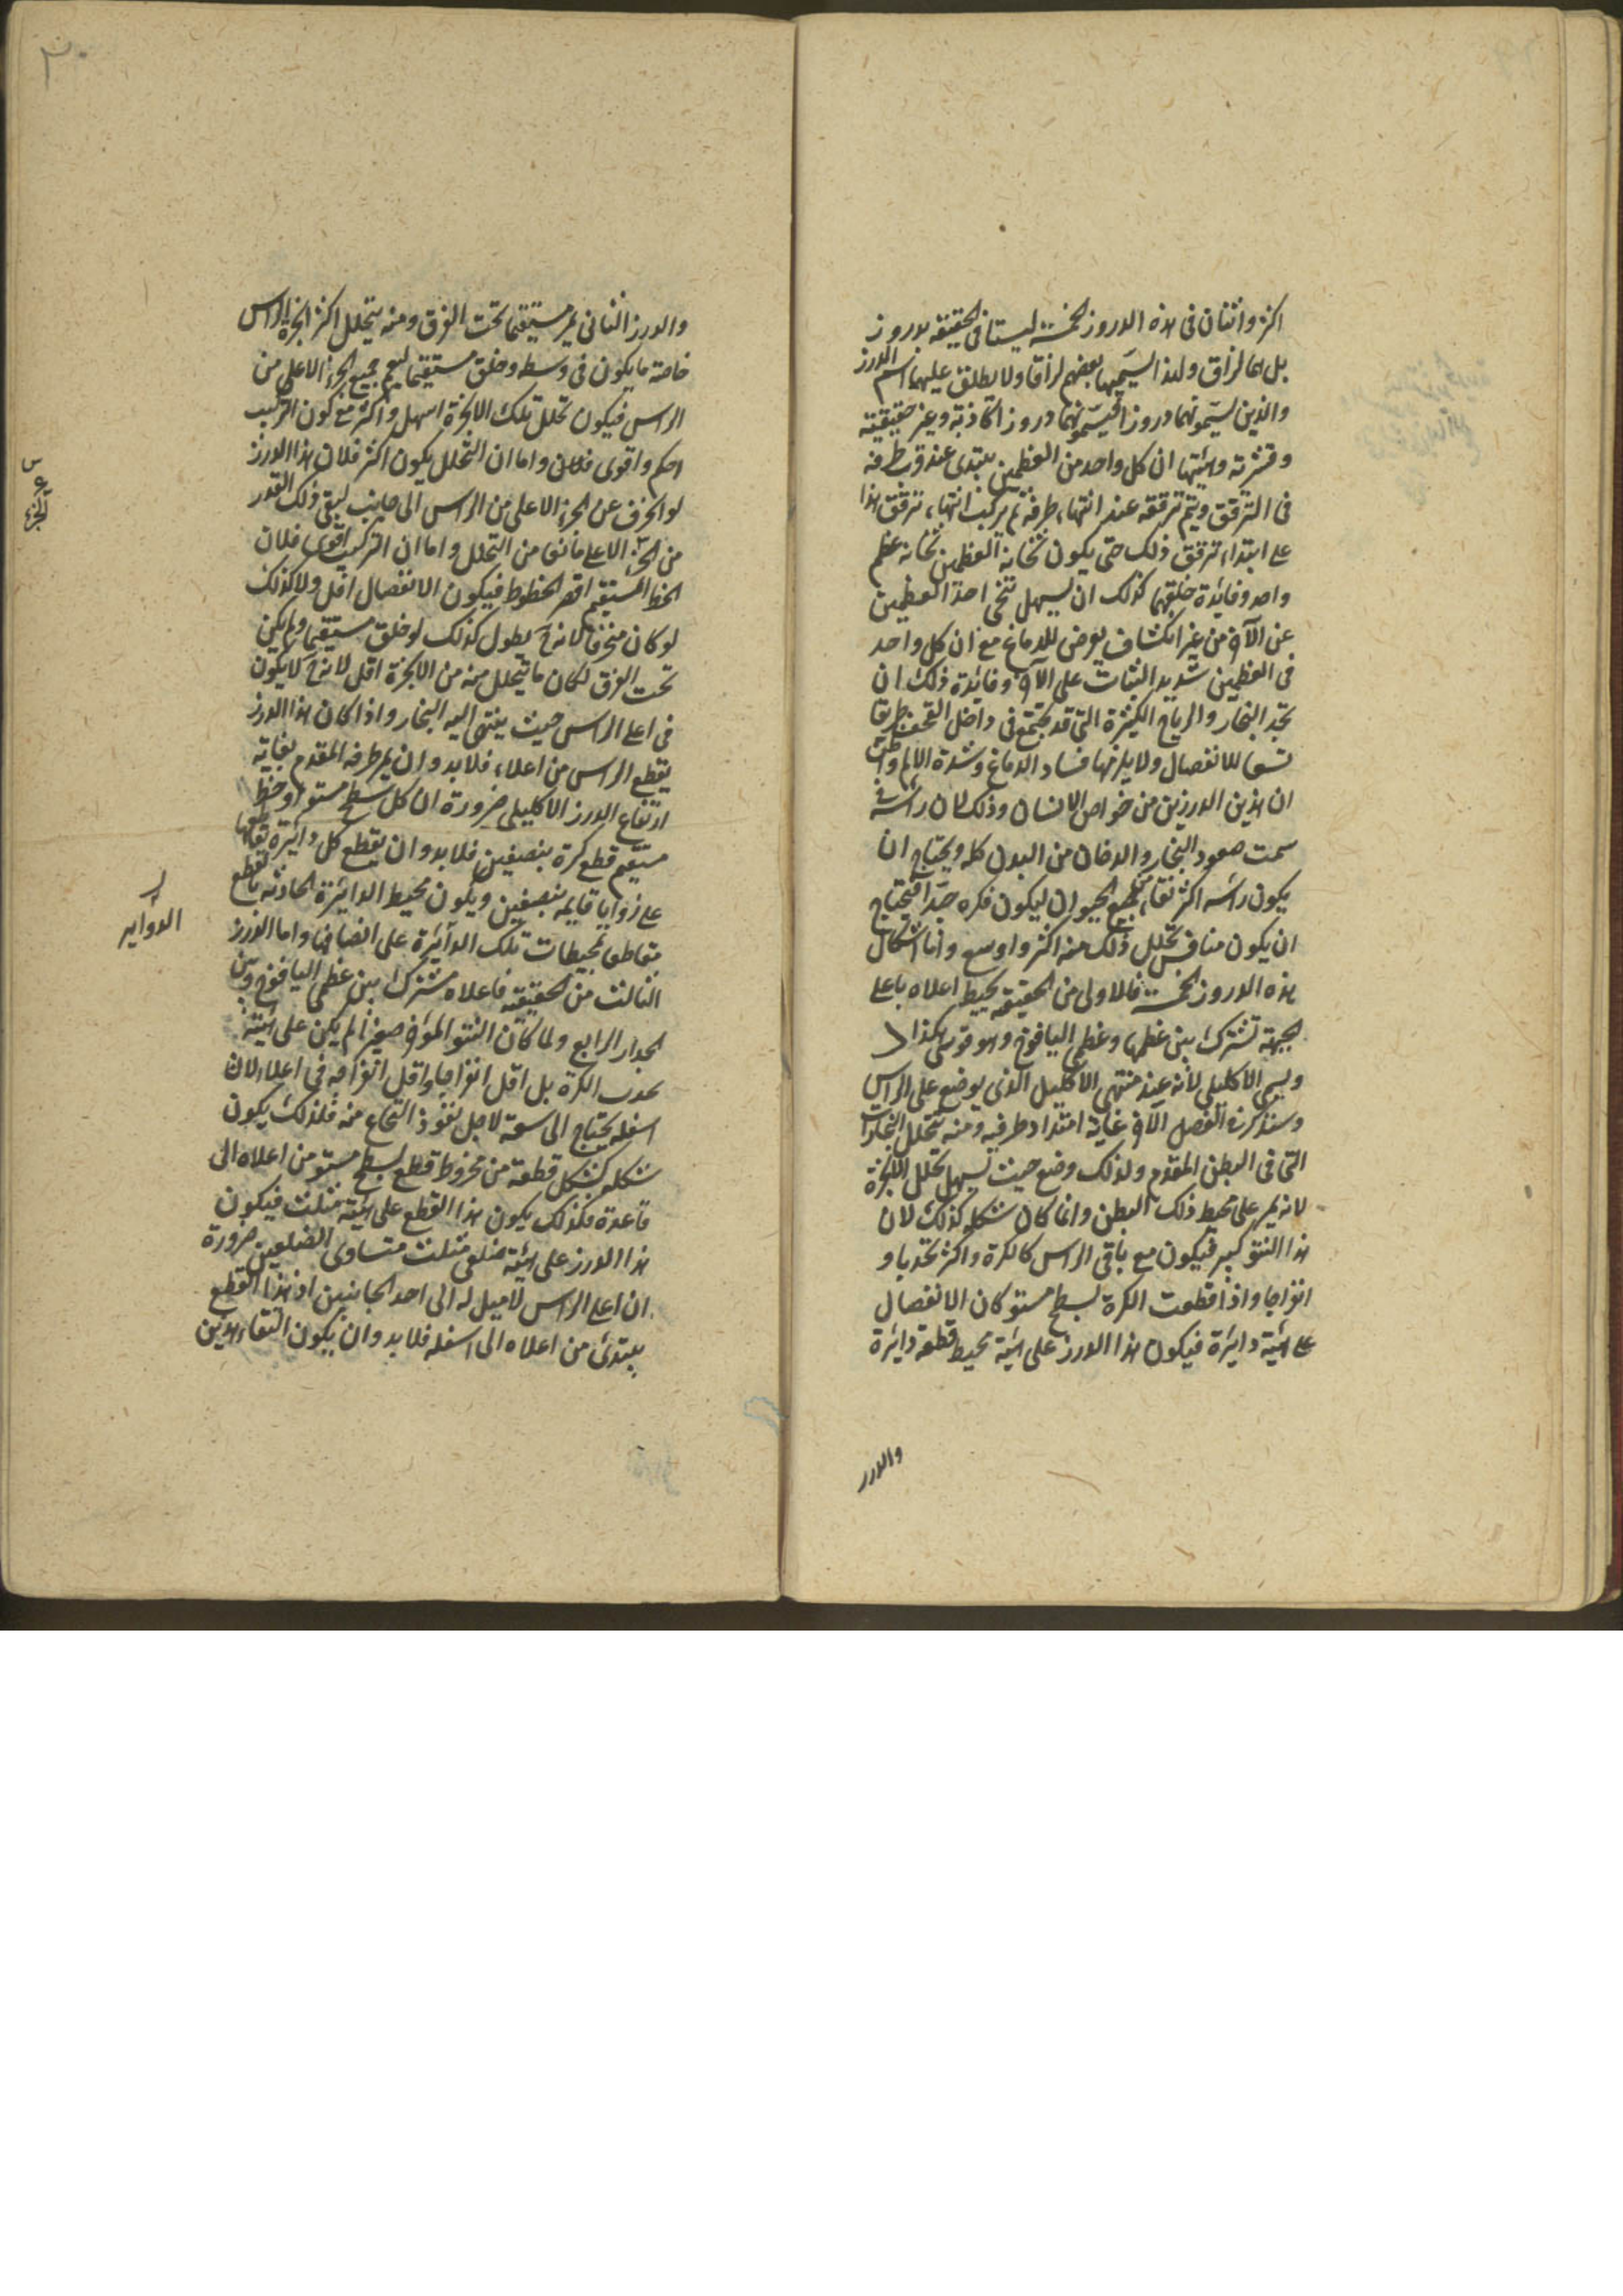 اكثر واثنان فى هذه الدروز الخمسة ليستا فى الحقيقة بدروز
بل كالزاق ولهذا يسميهما بعضهم لزاقا ولا يطلق عليهما اسم الدرز
والذين يسمونهما دروزا يسمونهما دروزا كاذبة وغير حقيقية
وقشرية وهيئتها ان كل واحد من العظمين يبتدى عند قرب طرفه
فى الترقق ويتم ترققه عند انتهاء طرفه ثم يركب انتهاء ترقق هذا
على ابتداء ترقق ذلك حتى يكون ثخانة العظمين ثخانة عظم
واحد وفائدة خلقهما كذلك ان يسهل تنحى احد العظمين
عن الآخر من غير انكشاف يعرض للدماغ مع ان كل واحد
فى العظمين شديد الثبات على الآخر وفائدة ذلك ان
تجد البخار والرياح الكثيرة التى قد تجتمع فى داخل القحف طريقا
تسعا للانفصال ولا يلزمها فساد الدماغ وشدة الالم واظن
ان هذين الدرزين من خواص الانسان وذلك لان راسه فى
سمت صعود البخار والدخان من البدن كله ويحتاج ان
يكون راسه اكثر نقاء من جميع الحيوان ليكون فكره جيدا فيحتاج
ان يكون منافس تحلل ذلك منه اكثر واوسع واما اشكال
هذه الدروز الخمسة فالاول من الحقيقية يحيط اعلاه باعلى
الجبهة تشترك بين عظمها وعظمى اليافوخ وهو قوسى هكذا
ويسمى الاكليلى لانه عند منتهى الاكليل الذى يوضع على الراس
وسنذكر فى الفصل الآخر غاية امتداد طرفيه ومنه تتحلل البخارات
التى فى البطن المقدم ولذلك وضع حيث يسهل تحلل الابخرة
لانه يمر على محيط ذلك البطن وانما كان شكله كذلك لان
هذا النتو كبير فيكون مع باقى الراس كالكرة واكثر تحدبا و
انفراجا واذا قطعت الكرة بسطح مستو كان الانفصال
على هيئة دايرة فيكون هذا الدرز على هيئة محيط قطعة دايرة
والدرز
٣٠
والدرز الثانى يمر مستقيما تحت الفرق ومنه يتحلل اكثر ابخرة الراس
خاصة ما يكون فى وسطه وخلق مستقيما ليعم جميع الجزء الاعلى من
الراس فيكون تحلل تلك الابخرة اسهل واكثر مع كون التركيب
احكم واقوى واما ان التحلل يكون اكثر فلان هذا الدرز
لو انحرف عن الجزء الاعلى من الراس الى جانب لبقى ذلك القدر
من الجزء الاعلى مانعا من التحلل واما ان التركيب اقوى فلان
الخط المستقيم اقصر الخطوط فيكون الانفصال اقل ولا كذلك
لو كان منحرفا لانه يطول كذلك لو خلق مستقيما ولم يكن
تحت الفرق لكان ما يتحلل منه من الابخرة اقل لانه لا يكون
فى اعلى الراس حيث ينتهى اليه البخار واذا كان هذا الدرز
يقطع الراس من اعلاه فلا بد وان يمر طرفه المقدم بغاية
ارتفاع الدرز الاكليلى ضرورة ان كل سطح مستو او خط
مستقيم قطع كرة بنصفين فلا بد وان يقطع كل دايرة تقاطعها
على زوايا قايمة بنصفين ويكون محيط الدائرة الحادثة بالقطع
مقاطعا لمحيطات تلك الدائرة على انصافها واما الدرز
الثالث من الحقيقية فاعلاه مشترك بين عظمى اليافوخ وبين
الجدار الرابع ولما كان النتو المؤخر صغيرا لم يكن على هيئة
محدب الكرة بل اقل انفراجا واقل انفراجه فى اعلاه لان
اسفله يحتاج الى سعة لاجل نفوذ النخاع منه فلذلك يكون
شكله كشكل قطعة من مخروط قطع بسطح مستو من اعلاه الى
قاعدة فلذلك يكون هذا القطع على هيئة مثلث فيكون
هذا الدرز على هيئة ضلعى مثلث متساوى الضلعين ضرورة
ان اعلى الراس لا ميل له الى احد الجانبين اذ هذا القطع
يبتدئ من اعلاه الى اسفله فلا بد وان يكون التقاء هذين
الدواير